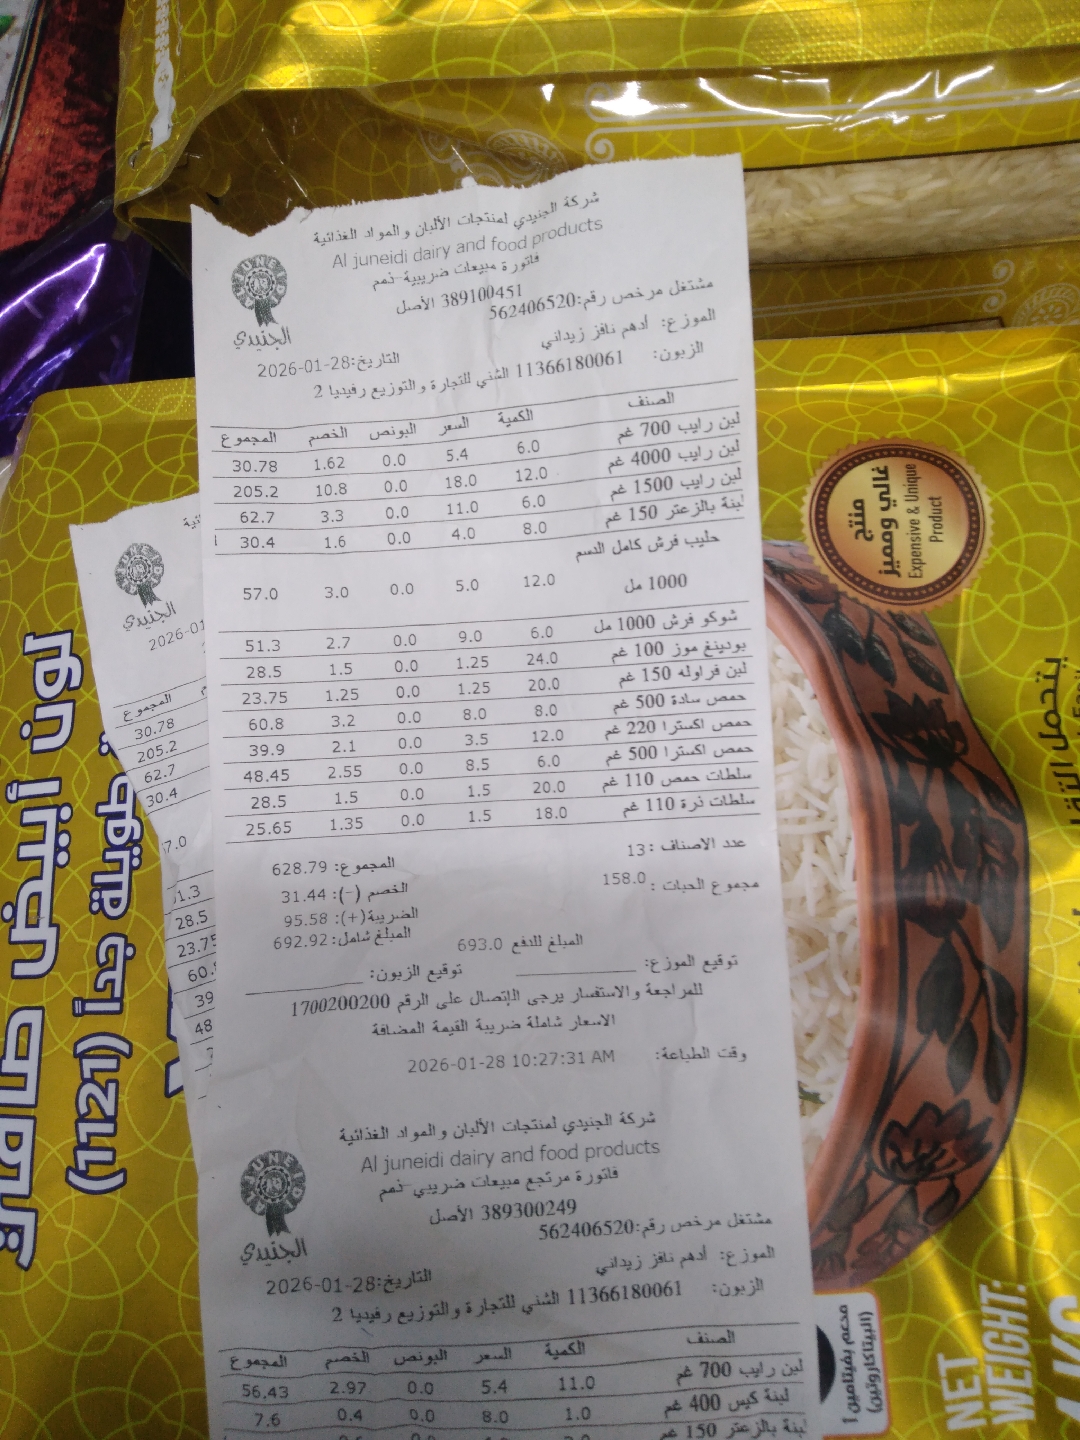 شركة الجنيدي لمنتجات الألبان والمواد الغذائية
Al juneidi dairy and food products
فاتورة مبيعات ضريبية-ذمم
389100451 الأصل
مشتغل مرخص رقم:562406520
JUNEIDI
الجنيدي
الموزع: أدهم نافز زيداني
التاريخ:28-01-2026
الزبون: 11366180061 الشني للتجارة والتوزيع رفيديا 2
الصنف الكمية السعر البونص الخصم المجموع
لبن رايب 700 غم 6.0 5.4 0.0 1.62 30.78
لبن رايب 4000 غم 12.0 18.0 0.0 10.8 205.2
لبن رايب 1500 غم 6.0 11.0 0.0 3.3 62.7
لبنة بالزعتر 150 غم 8.0 4.0 0.0 1.6 30.4
حليب فرش كامل الدسم
1000 مل 12.0 5.0 0.0 3.0 57.0
شوكو فرش 1000 مل 6.0 9.0 0.0 2.7 51.3
بودينغ موز 100 غم 24.0 1.25 0.0 1.5 28.5
لبن فراوله 150 غم 20.0 1.25 0.0 1.25 23.75
حمص سادة 500 غم 8.0 8.0 0.0 3.2 60.8
حمص اكسترا 220 غم 12.0 3.5 0.0 2.1 39.9
حمص اكسترا 500 غم 6.0 8.5 0.0 2.55 48.45
سلطات حمص 110 غم 20.0 1.5 0.0 1.5 28.5
سلطات ذرة 110 غم 18.0 1.5 0.0 1.35 25.65
عدد الاصناف :13
المجموع: 628.79
مجموع الحبات : 158.0
الخصم (-): 31.44
الضريبة(+): 95.58
المبلغ شامل: 692.92
المبلغ للدفع 693.0
توقيع الموزع: توقيع الزبون:
للمراجعة والاستفسار يرجى الإتصال على الرقم 1700200200
الاسعار شاملة ضريبة القيمة المضافة
وقت الطباعة: 2026-01-28 10:27:31 AM
شركة الجنيدي لمنتجات الألبان والمواد الغذائية
Al juneidi dairy and food products
فاتورة مرتجع مبيعات ضريبي-ذمم
389300249 الأصل
مشتغل مرخص رقم:562406520
JUNEIDI
الجنيدي
الموزع: أدهم نافز زيداني
التاريخ:28-01-2026
الزبون: 11366180061 الشني للتجارة والتوزيع رفيديا 2
الصنف الكمية السعر البونص الخصم المجموع
لبن رايب 700 غم 11.0 5.4 0.0 2.97 56.43
لبنة كيس 400 غم 1.0 8.0 0.0 0.4 7.6
لبنة بالزعتر 150 غم
الجنيدي
2026-01
المجموع
30.78
205.2
62.7
30.4
7.0
51.3
28.5
23.75
60.
39
48
منتج
غالي ومميز
Expensive & Unique
Product
لون أبيض صافي
طويلة جداً (1121)
NET
WEIGHT:
مدعم بفيتامين أ
(البيتاكاروتين)